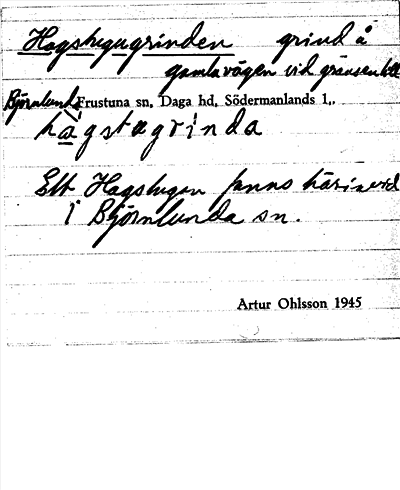 Hagstugugrinden grind å
gamlavägen vid gränsen till
Björnlunda Frustuna sn, Daga hd, Södermanlands l,.
hagstagrinda
Ett Hagstugan fanns härinvid
i Björnlunda sn.
Artur Ohlsson 1945